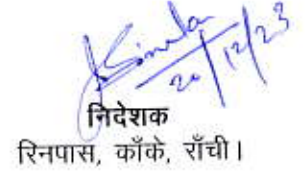 20/12/23
निदेशक
रिनपास, काँके, राँची।